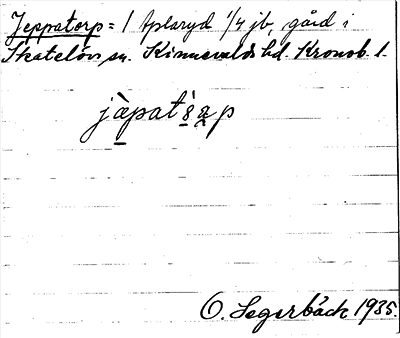 Jeppatorp = 1 Aplaryd 1/4 jb, gård i
Skatelövs sn. Kinnevalds hd. Kronob. l.
jàpat
O. Segerbäck 1935.